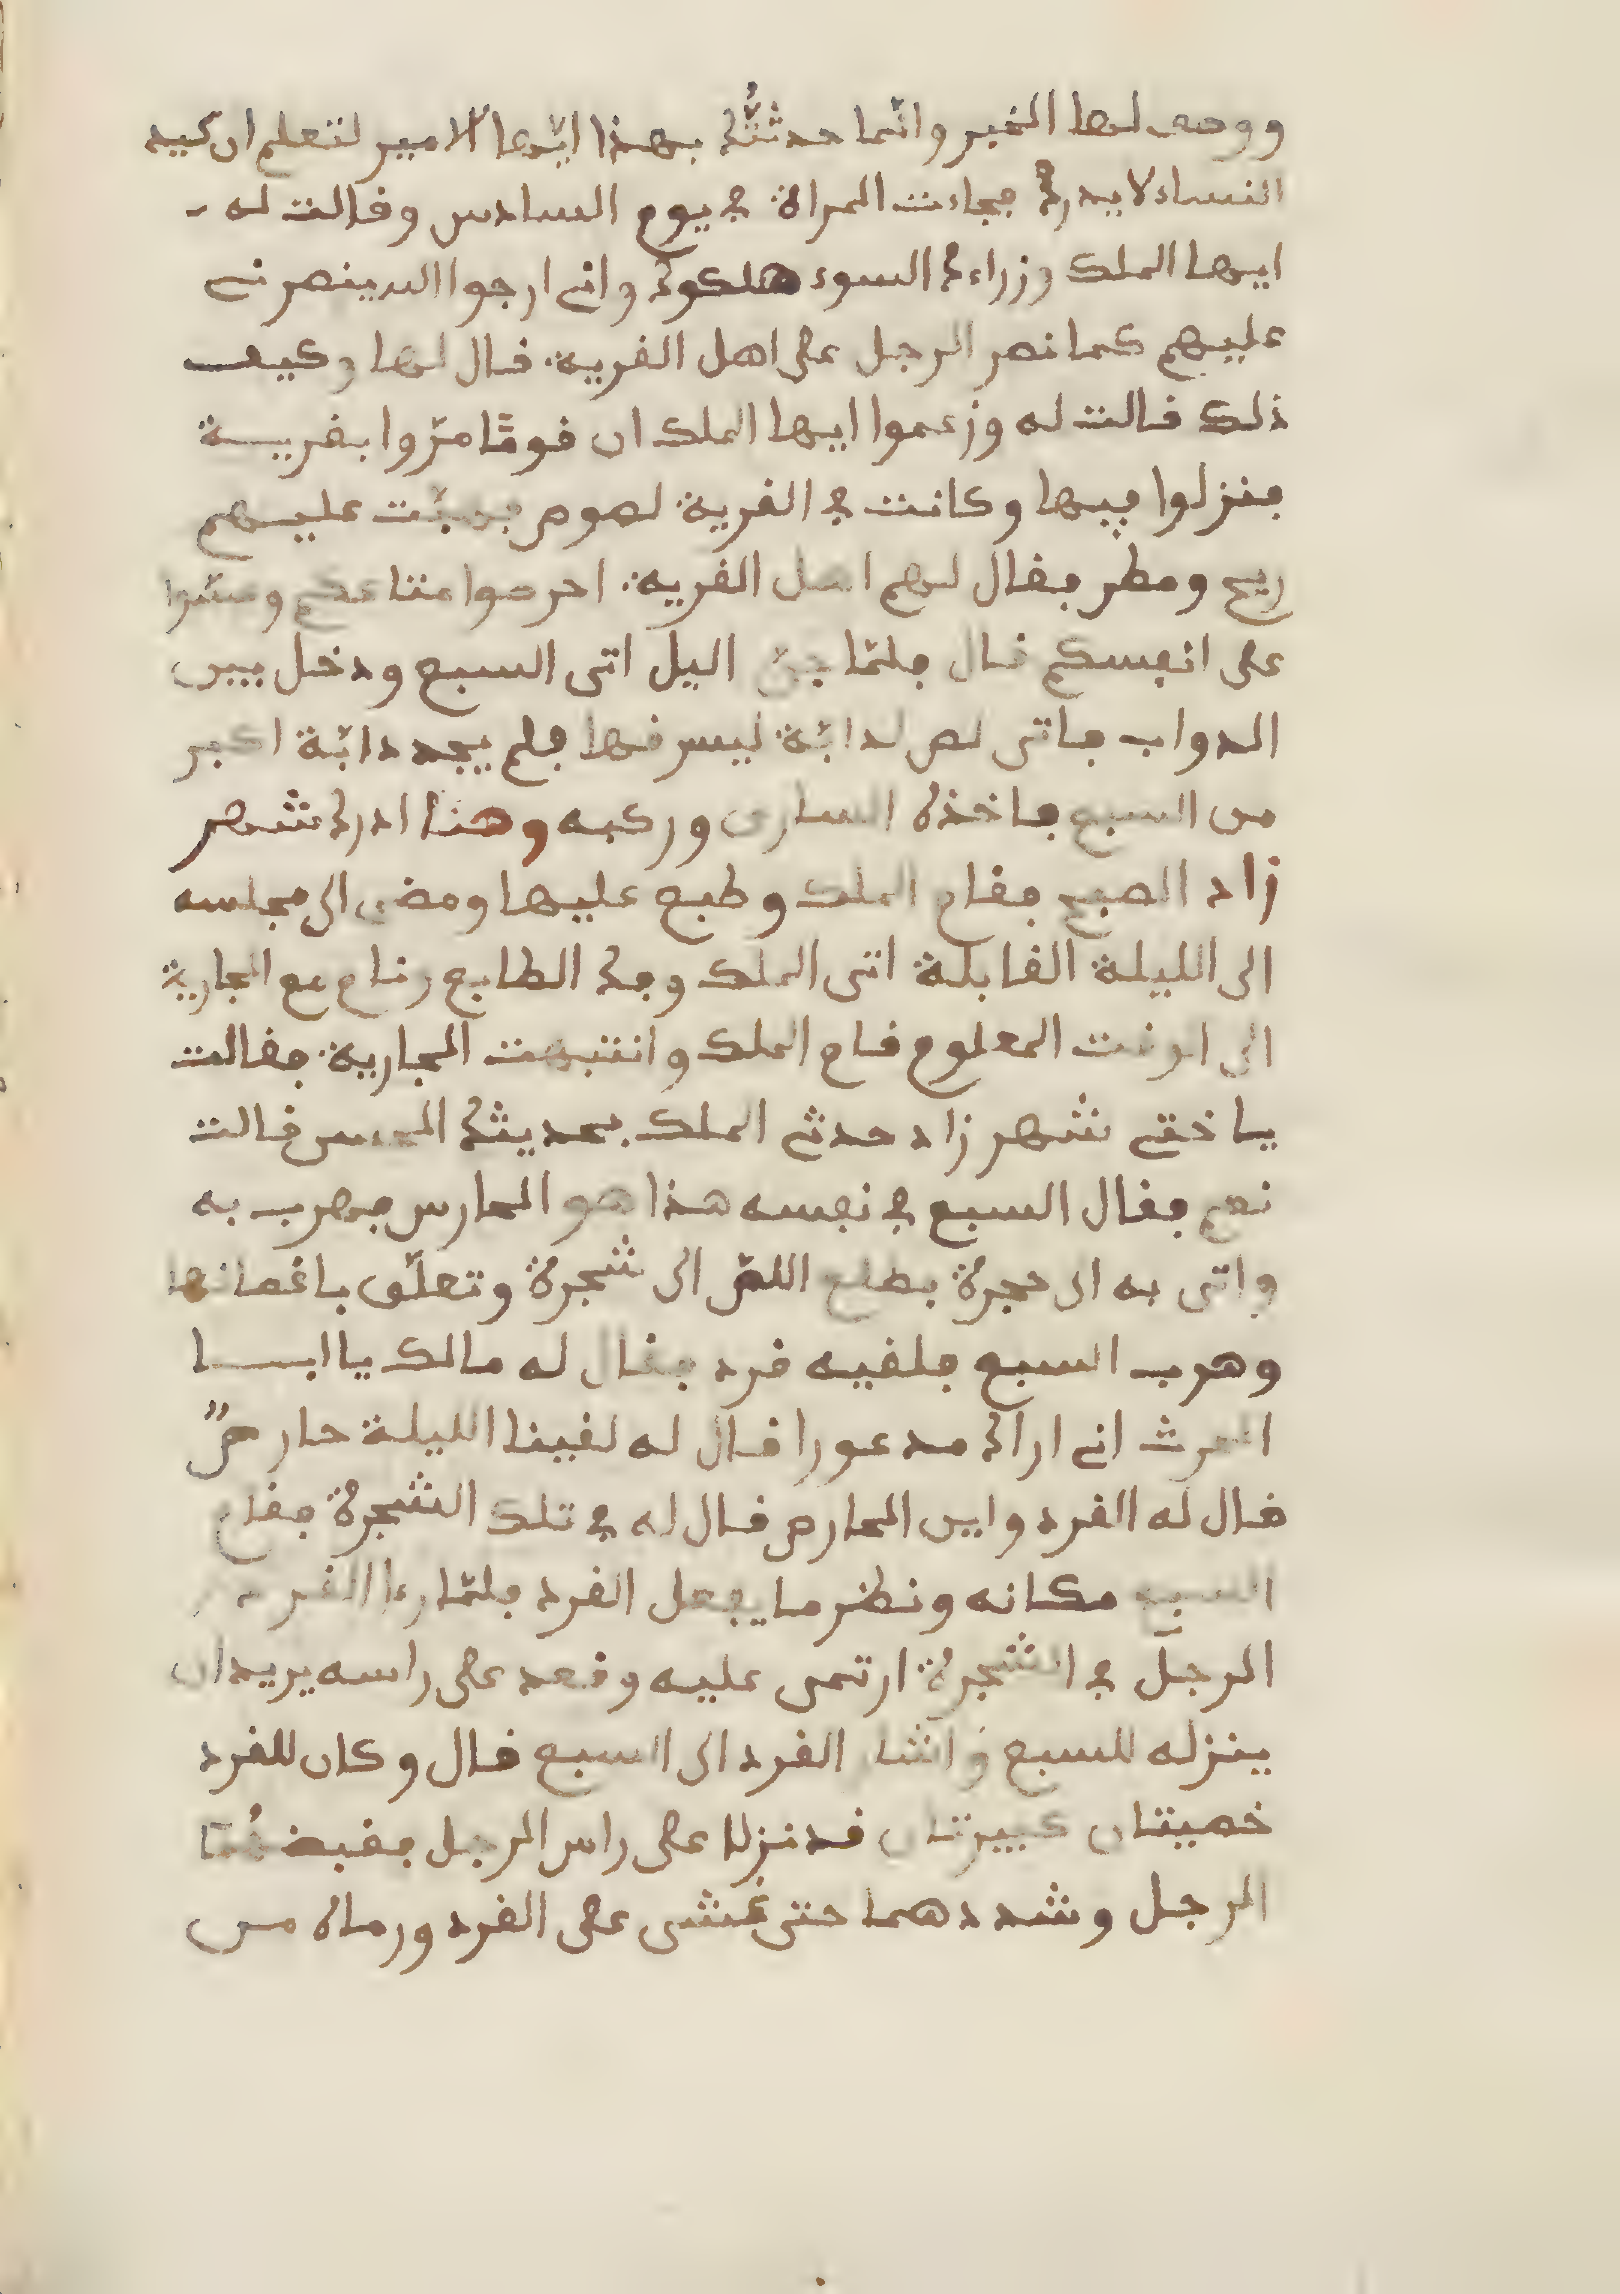 ووصف لها الخبر وانّما حدثتُّك بهذا ايّها الامير لتعلم ان كيد
النساء لا يدرك فجاءت المراة في يوم السادس وقالت له
ايها الملك وزراءك السوء هلكوك واني ارجوا الله ينصرني
عليهم كما نصر الرجل على اهل القرية قال لها وكيف
ذلك قالت له وزعموا ايها الملك ان قومًا مرّوا بقريـة
فنزلوا فيها وكانت في القرية لصوص فهبّت عليهم
ريح ومطر فقال لهم اهل القرية احرصوا متاعكم
على انفسكم قال فلمّا جنّ اليل اتى السبع ودخل بين
الدواب فاتى لص لدابّة ليسرقها فلم يجد دابّة اكبر
من السبع فاخذه السارق وركبه وهنا ادرك شهر
زاد الصبح فقام الملك وطبع عليها ومضى الى مجلسه
الى الليلة القابلة اتى الملك وفك الطابع ونام مع الجارية
الى الوقت المعلوم قام الملك وانتبهت الجارية فقالت
ياختي شهر زاد حدثي الملك بحديثك الحسن قالت
نعم فقال السبع في نفسه هذا هو الحارس فهرب به
واتى به الى حجرة فطلع اللصّ الى شجرة وتعلّق باغصانها
وهرب السبع فلقيه قرد فقال له مالك يا ابـا
الحرث اني اراك مدعورا قال له لقينا الليلة حارصٌ
قال له القرد واين الحارص قال له في تلك الشجرة فقام
السبع مكانه ونظر ما يفعل القرد فلمّا رءا القرد
الرجل في الشجرة ارتمى عليه وقعد على راسه يريد ان
ينزله للسبع واشار القرد الى السبع قال وكان للقرد
خصيتان كبيرتان قد نزلا على راس الرجل فقبضهما
الرجل وشددهما حتى غشى على القرد ورماه من